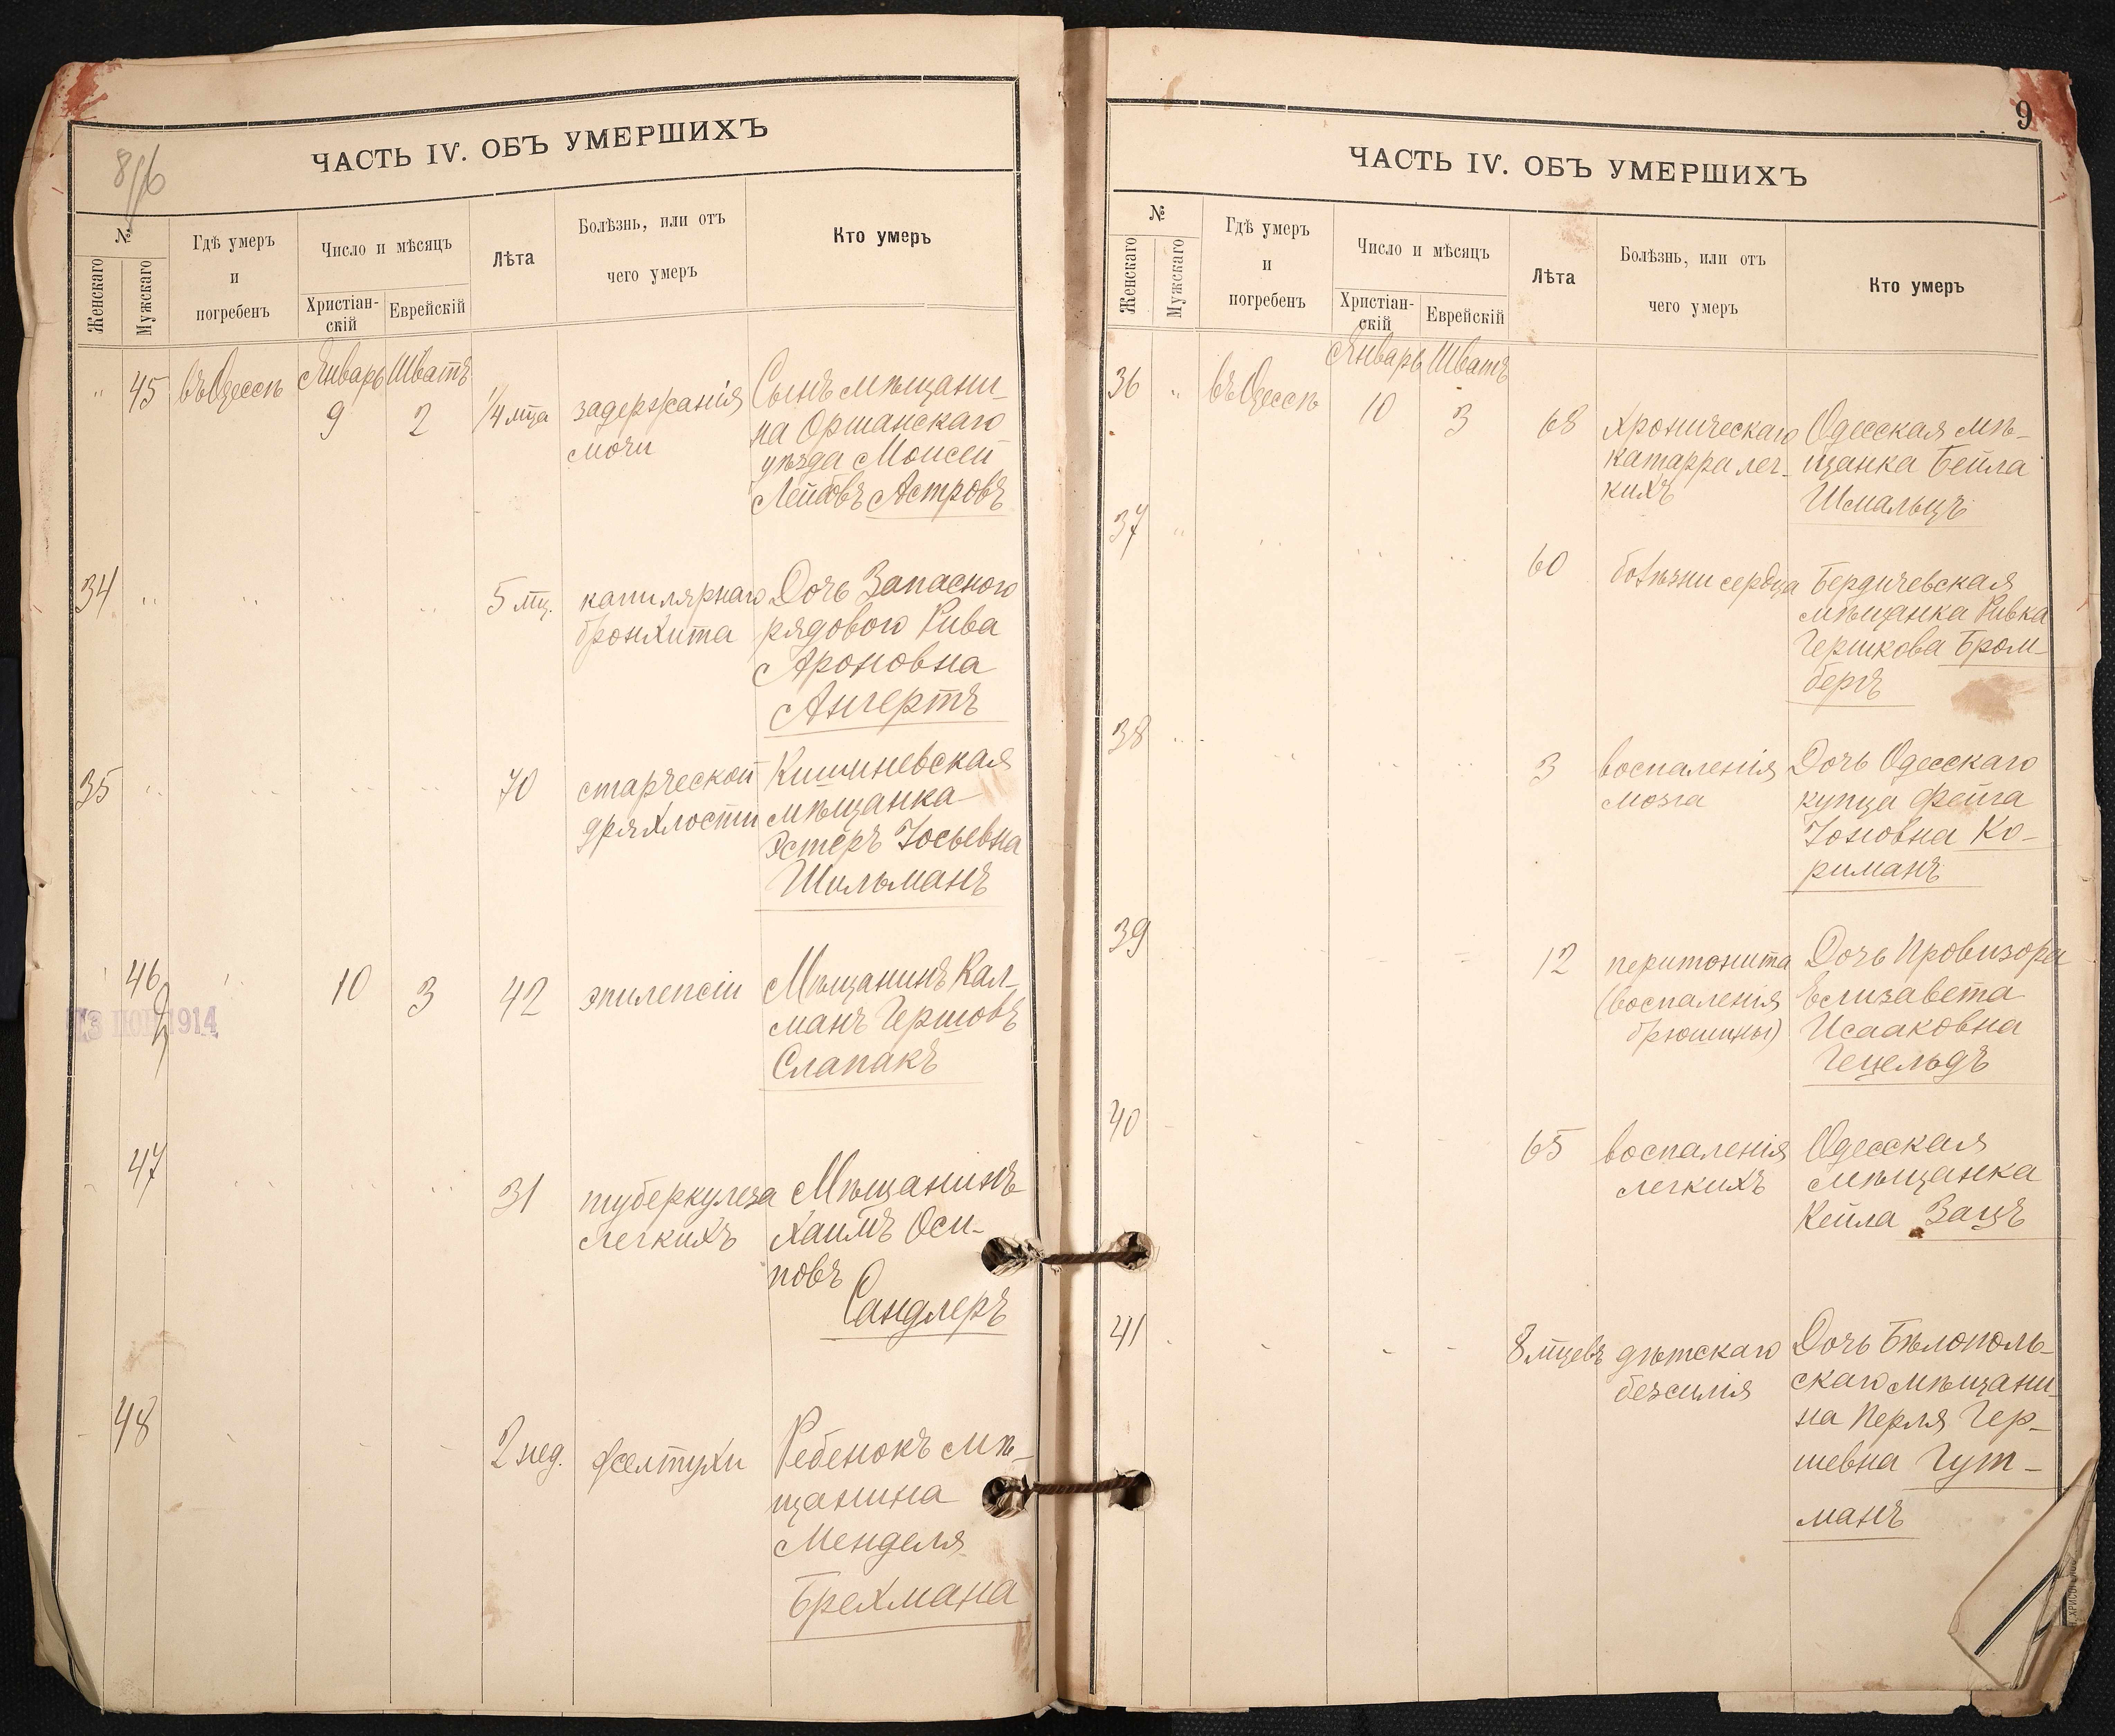 ЧАСТЬ IV. ОБЪ УМЕРШИХЪ
№
Женскаго
Мужскаго
Гдѣ умеръ
и
погребенъ
Число и мѣсяцъ
Христіан-
скій
Еврейскій
Лѣта
Болѣзнь, или отъ
чего умеръ
Кто умеръ
" 45 въ Одессѣ Январь Шватъ
9 2 1/4 мца задержанія Сынъ мѣщани-
мочи на Оршанскаго
уѣзда Моисей
Лейбовъ Астровъ
34 " " " " 5 мц. капилярнаго Дочь Запаснаго
бронхита рядового Рива
Ароновна
Ангертъ
35 " " " " 70 старческой Кишиневская
дряхлости мѣщанка
Эстеръ Іосьевна
Шильманъ
" 46 " 10 3 42 эпилепсіи Мѣщанинъ Кал-
манъ Гершовъ
Слапакъ
13 1914
47 " " " 31 туберкулеза Мѣщанинъ
легкихъ Хаимъ Оси-
повъ
Сандлеръ
48 2 нед. желтухи Ребенокъ мѣ-
щанина
Менделя
Брехмана
9
ЧАСТЬ IV. ОБЪ УМЕРШИХЪ
№
Женскаго
Мужскаго
Гдѣ умеръ
и
погребенъ
Число и мѣсяцъ
Христіан-
скій
Еврейскій
Лѣта
Болѣзнь, или отъ
чего умеръ
Кто умеръ
36 " въ Одессѣ Январь Шватъ
10 3 68 хроническаго Одесская мѣ-
катарра лег- щанка Бейла
кихъ Шмальцъ
37 " " " " 60 болѣзни сердца Бердичевская
мѣщанка Ривка
Гершкова Бром-
бергъ
38 " " " " 3 воспаленія Дочь Одесскаго
мозга купца Фейга
Іоновна Ко-
риманъ
39 12 перитонита Дочь Провизора
(воспаленія Елизавета
брюшины) Исааковна
Гецельдъ
40 65 воспаленія Одесская
легкихъ мѣщанка
Кейла Зацъ
41 8 мцевъ дѣтскаго Дочь Бѣлополь-
безсилія скаго мѣщани-
на Перля Гер-
шевна Гут-
манъ